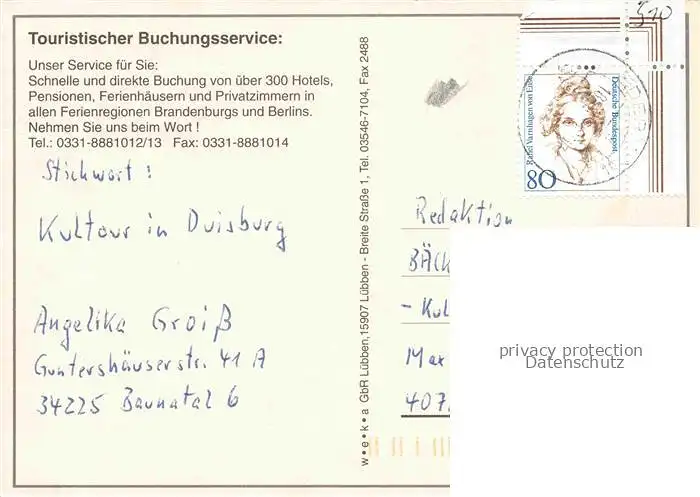 Touristischer Buchungsservice:
Unser Service für Sie:
Schnelle und direkte Buchung von über 300 Hotels,
Pensionen, Ferienhäusern und Privatzimmern in
allen Ferienregionen Brandenburgs und Berlins.
Nehmen Sie uns beim Wort !
Tel.: 0331-8881012/13 Fax: 0331-8881014
Stichwort :
Kultour in Duisburg
Angelika Groiß
Guntershäuserstr. 41 A
34225 Baunatal 6
w•e•k•a GbR Lübben, 15907 Lübben - Breite Straße 1, Tel. 03546-7104, Fax 2488
510
Rahel Varnhagen von Ense
Deutsche Bundespost
80
Redaktion
BÄCK
- Kul
Max
407
privacy protection
Datenschutz